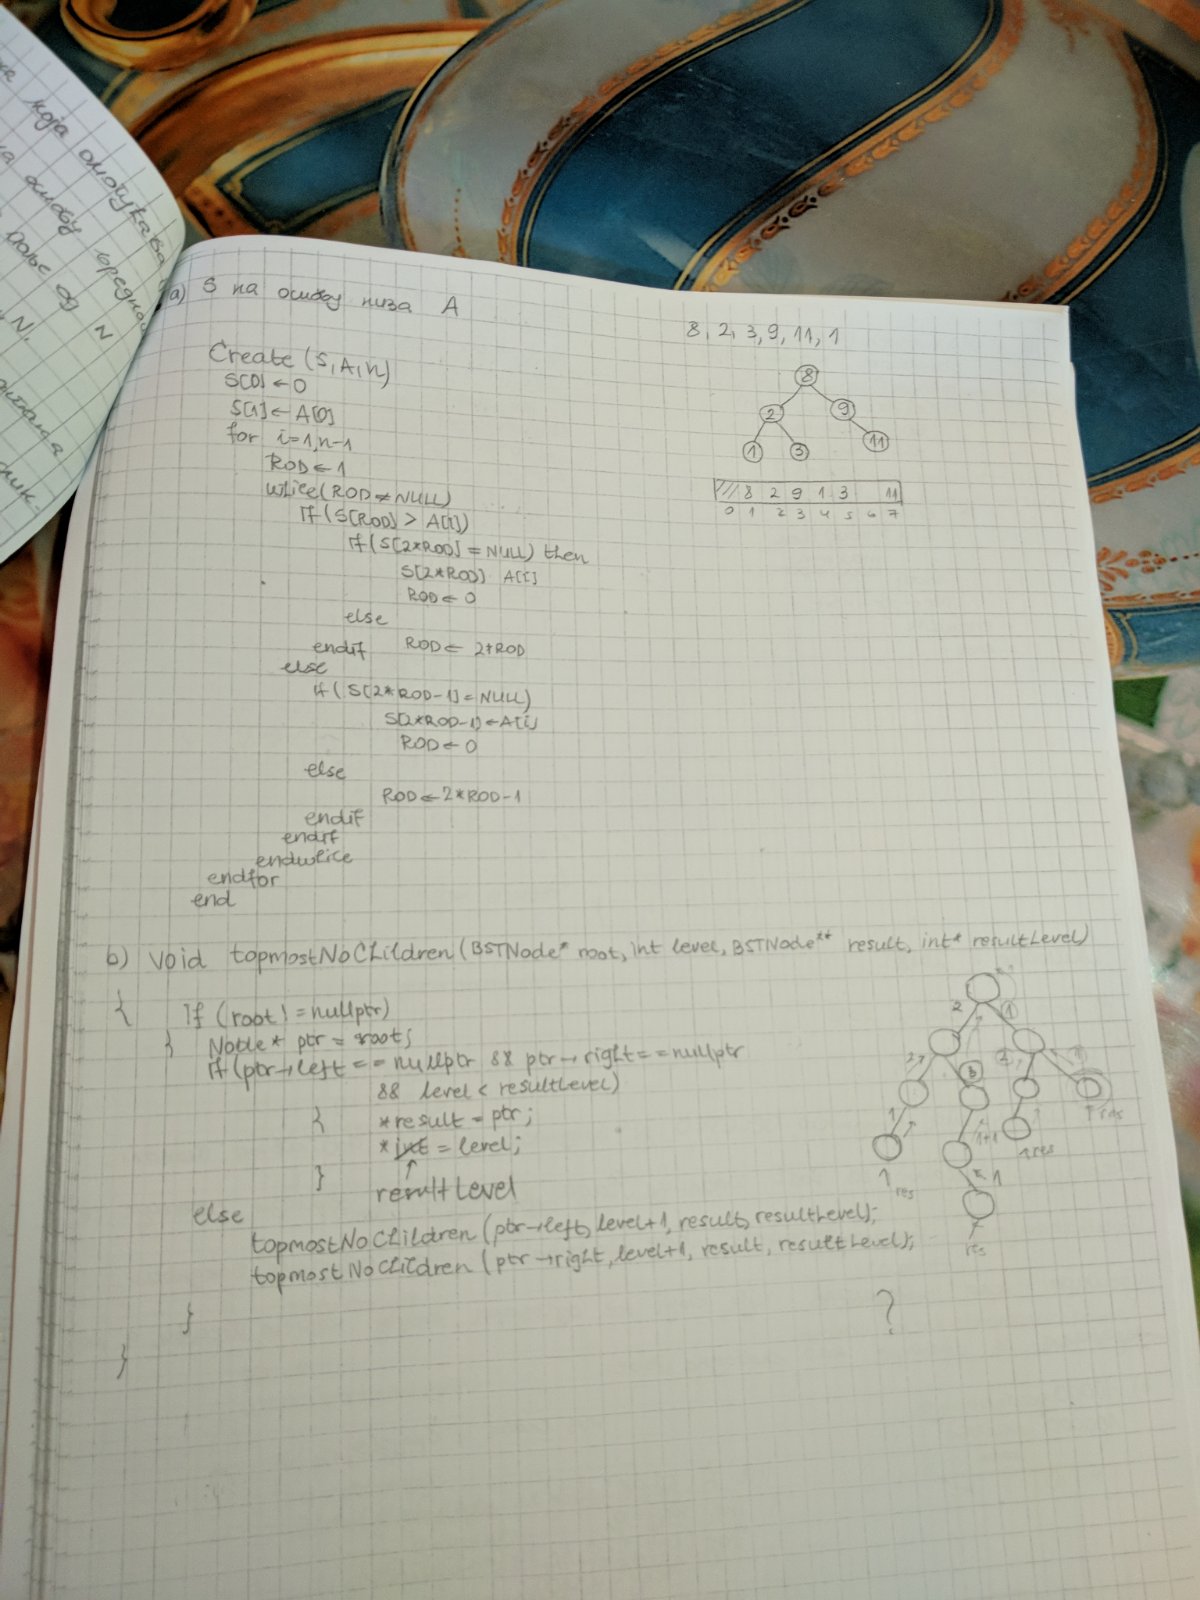 која омогућава
основу
N.
a) S на основу низа A
8, 2, 3, 9, 11, 1
Create (S, A, n)
S[0] ← 0
S[1] ← A[0]
for i=1, n-1
ROD ← 1
while (ROD ≠ NULL)
If (S[ROD] > A[i])
if (S[2*ROD] = NULL) then
S[2*ROD] A[i]
ROD ← 0
else
endif ROD ← 2*ROD
else
if (S[2*ROD-1] = NULL)
S[2*ROD-1] ← A[i]
ROD ← 0
else
ROD ← 2*ROD-1
endif
endif
endwhile
endfor
end
8
2 9
1 3 11
8 2 9 1 3 11
0 1 2 3 4 5 6 7
b) void topmostNoChildren (BSTNode* root, int level, BSTNode** result, int* resultLevel)
{ If (root != nullptr)
{ Node* ptr = root;
If (ptr→left == nullptr && ptr→right == nullptr
&& level < resultLevel)
{ *result = ptr;
*int = level;
} resultLevel
else
topmostNoChildren (ptr→left, level+1, result, resultLevel);
topmostNoChildren (ptr→right, level+1, result, resultLevel);
}
}
2 1
2 3 2 1
1 1+1 res
1 res 1 res
1
res
?